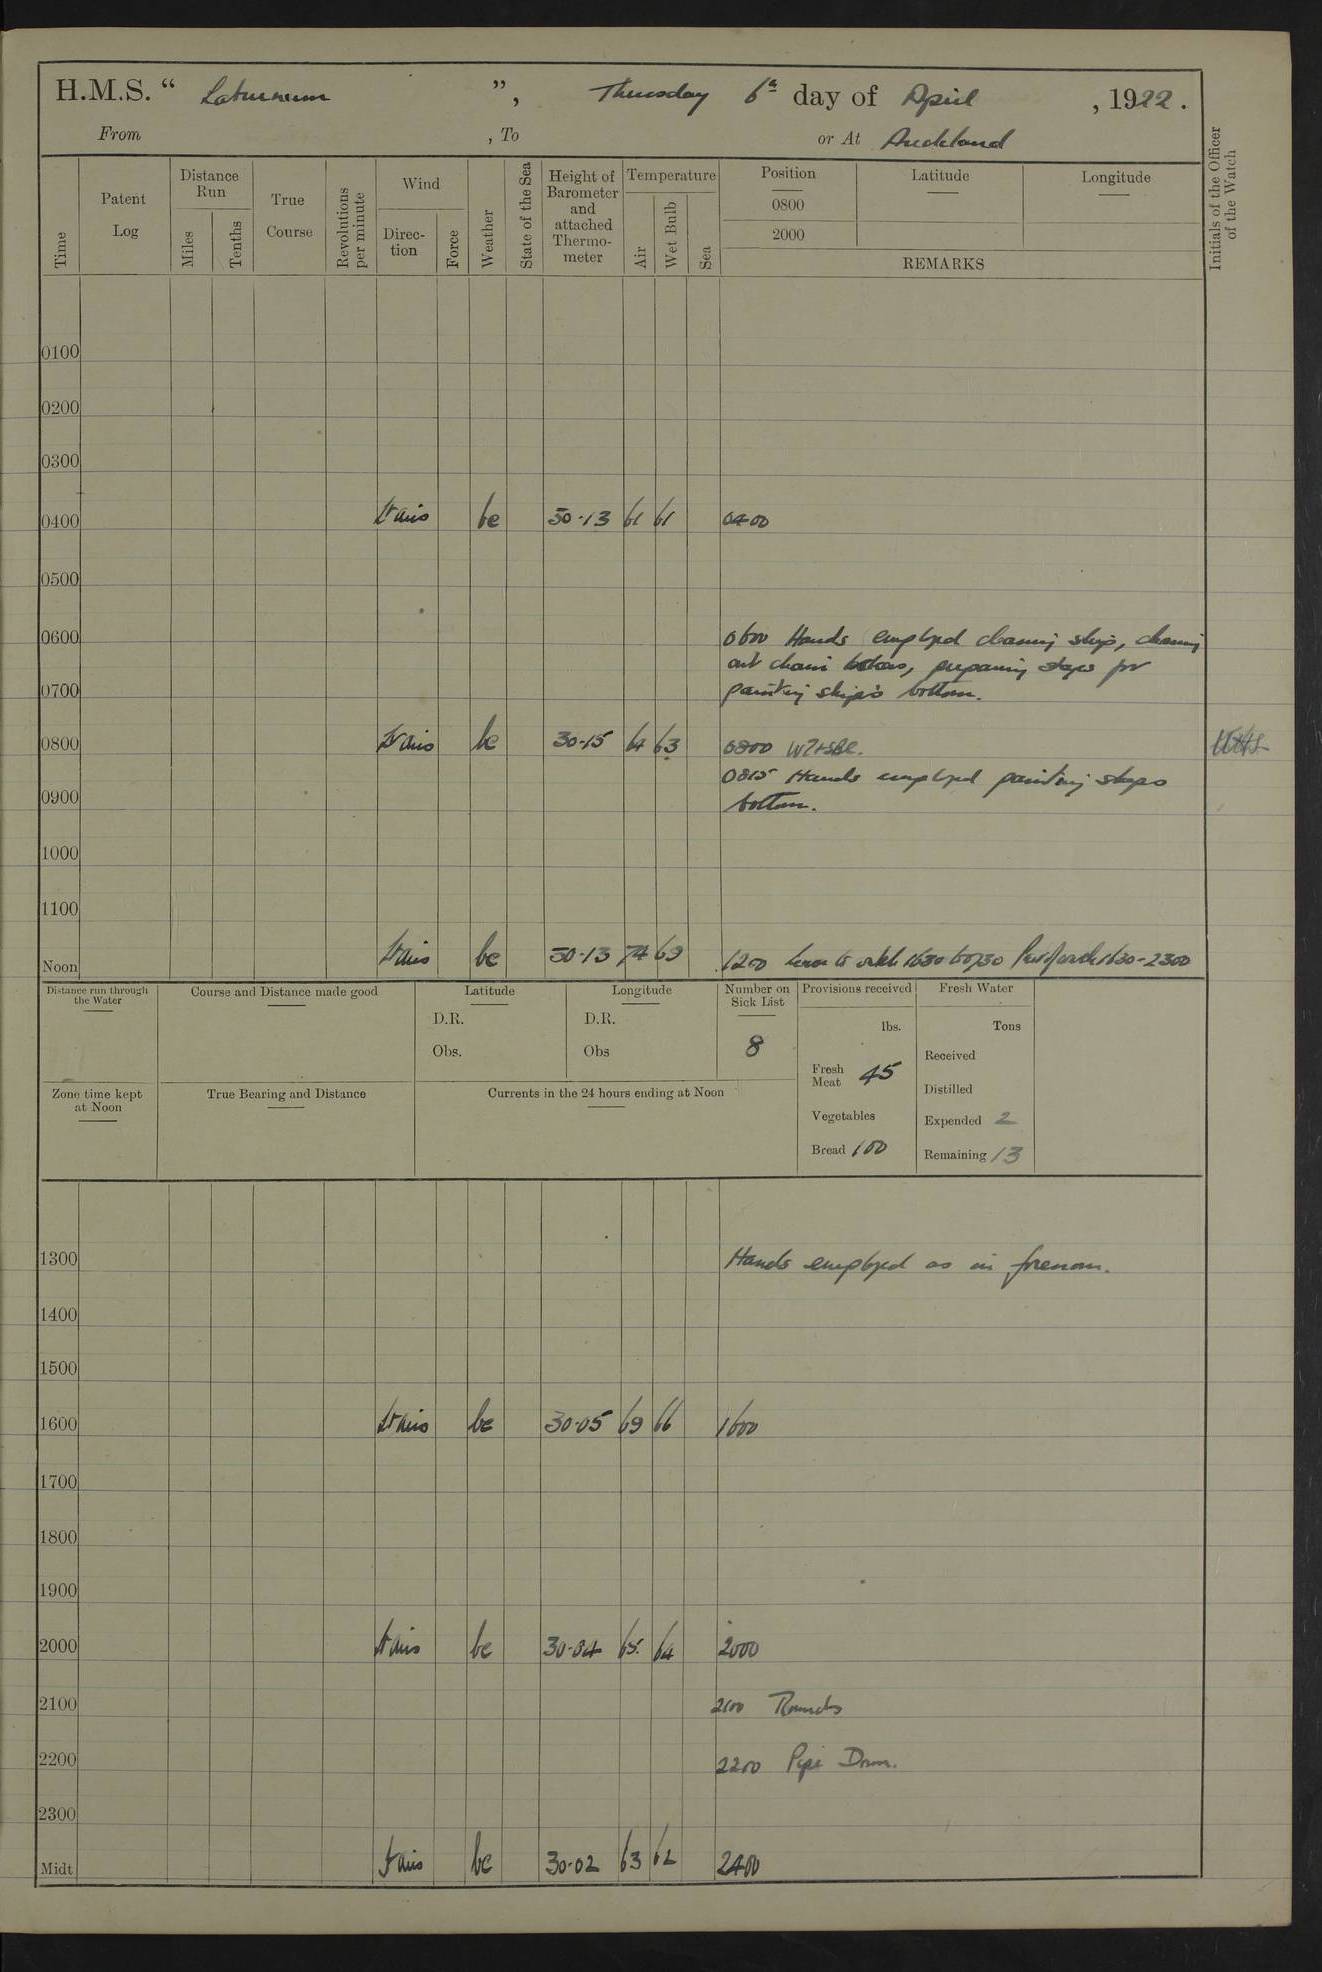 H.M.S. “ Laburnum ”, Thursday 6th day of April , 1922 .
From , To or At Auckland
Time
Patent Log
Distance Run
Miles
Tenths
True Course
Revolutions per minute
Wind
Direction
Force
Weather
State of the Sea
Height of Barometer and attached Thermometer
Temperature
Air
Wet Bulb
Sea
Position
0800
2000
Latitude
Longitude
REMARKS
Initials of the Officer of the Watch
0100
0200
0300
0400 Lt airs bc 30·13 61 61 0400
0500
0600 0600 Hands employed cleaning ship, cleaning
out chain lockers, preparing stages for
0700 painting ship's bottom.
0800 Lt airs bc 30·15 64 63 0800
0815 Hands employed painting ships
0900 bottom.
1000
1100
Noon Lt airs bc 30·13 74 69 1200 Leave to watch 1630 to 0730 1630-2300
Distance run through the Water
Course and Distance made good
Latitude
D.R.
Obs.
Longitude
D.R.
Obs
Number on Sick List
8
Provisions received
lbs.
Fresh Meat 45
Vegetables
Bread 100
Fresh Water
Tons
Received
Distilled
Expended 2
Remaining 13
Zone time kept at Noon
True Bearing and Distance
Currents in the 24 hours ending at Noon
1300 Hands employed as in forenoon.
1400
1500
1600 Lt airs bc 30·05 69 66 1600
1700
1800
1900
2000 Lt airs bc 30·04 65 64 2000
2100 2100 Rounds
2200 2200 Pipe Down.
2300
Midt Lt airs bc 30·02 63 62 2400